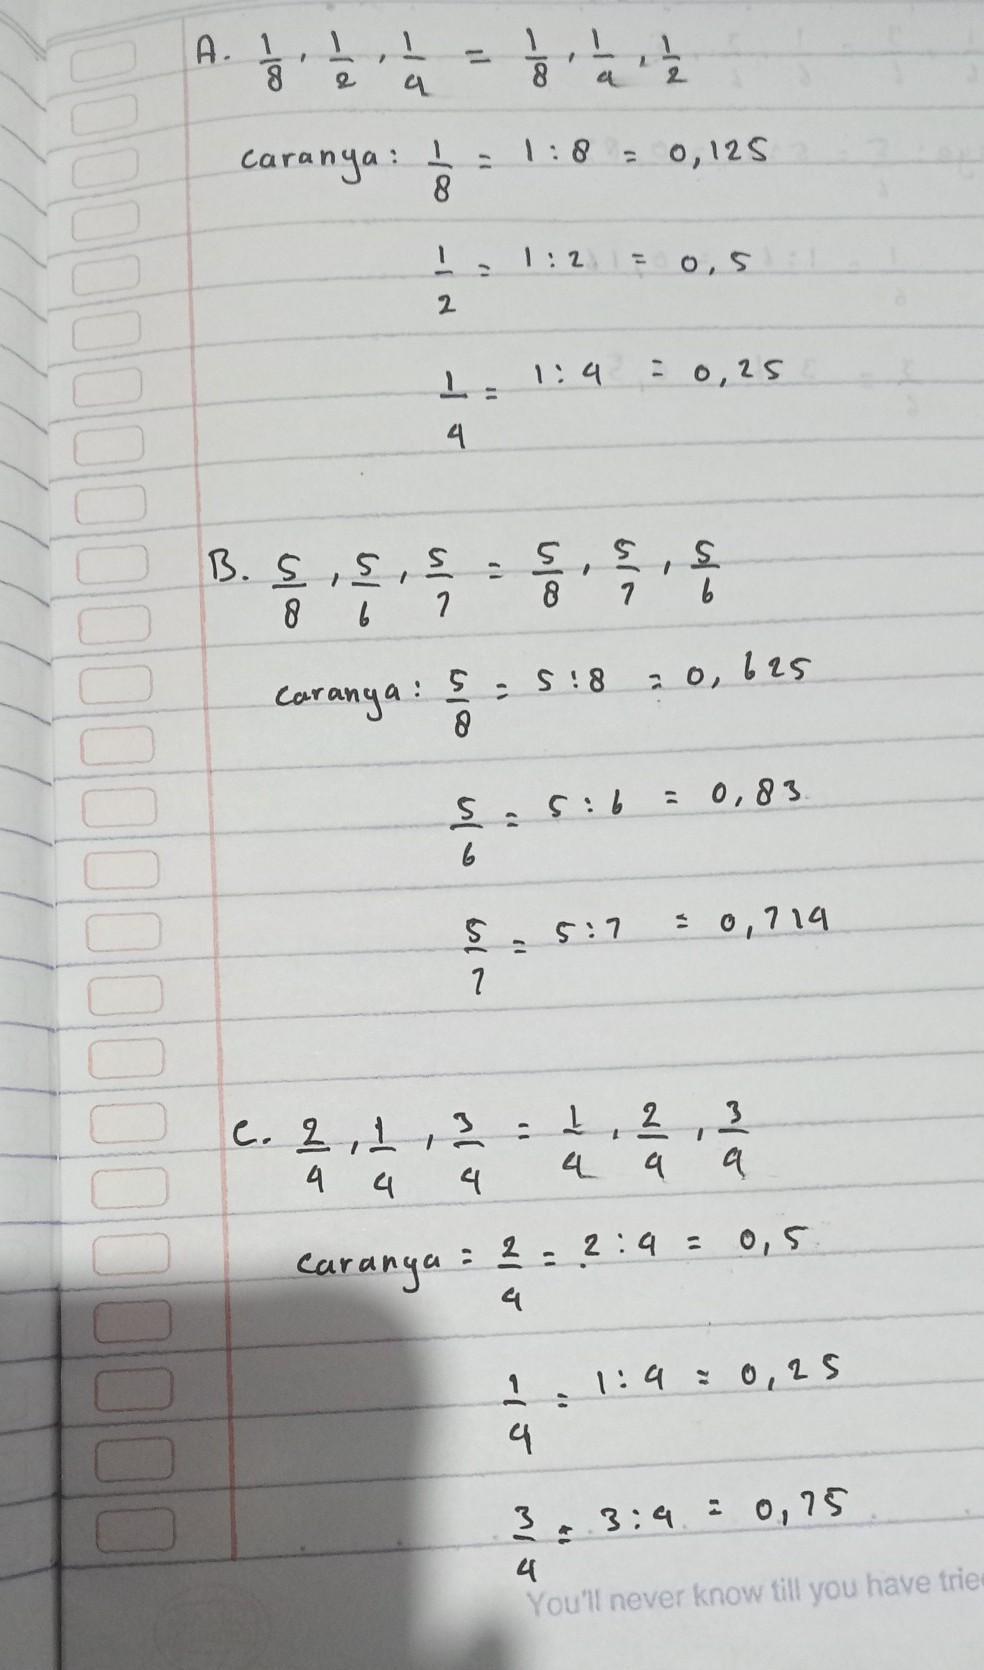 A. 1/8, 1/2, 1/4 = 1/8, 1/4, 1/2
caranya: 1/8 = 1:8 = 0,125
1/2 = 1:2 = 0,5
1/4 = 1:4 = 0,25
B. 5/8, 5/6, 5/7 = 5/8, 5/7, 5/6
caranya: 5/8 = 5:8 = 0,625
5/6 = 5:6 = 0,83
5/7 = 5:7 = 0,714
C. 2/4, 1/4, 3/4 = 1/4, 2/4, 3/4
caranya = 2/4 = 2:4 = 0,5
1/4 = 1:4 = 0,25
3/4 = 3:4 = 0,75
You'll never know till you have